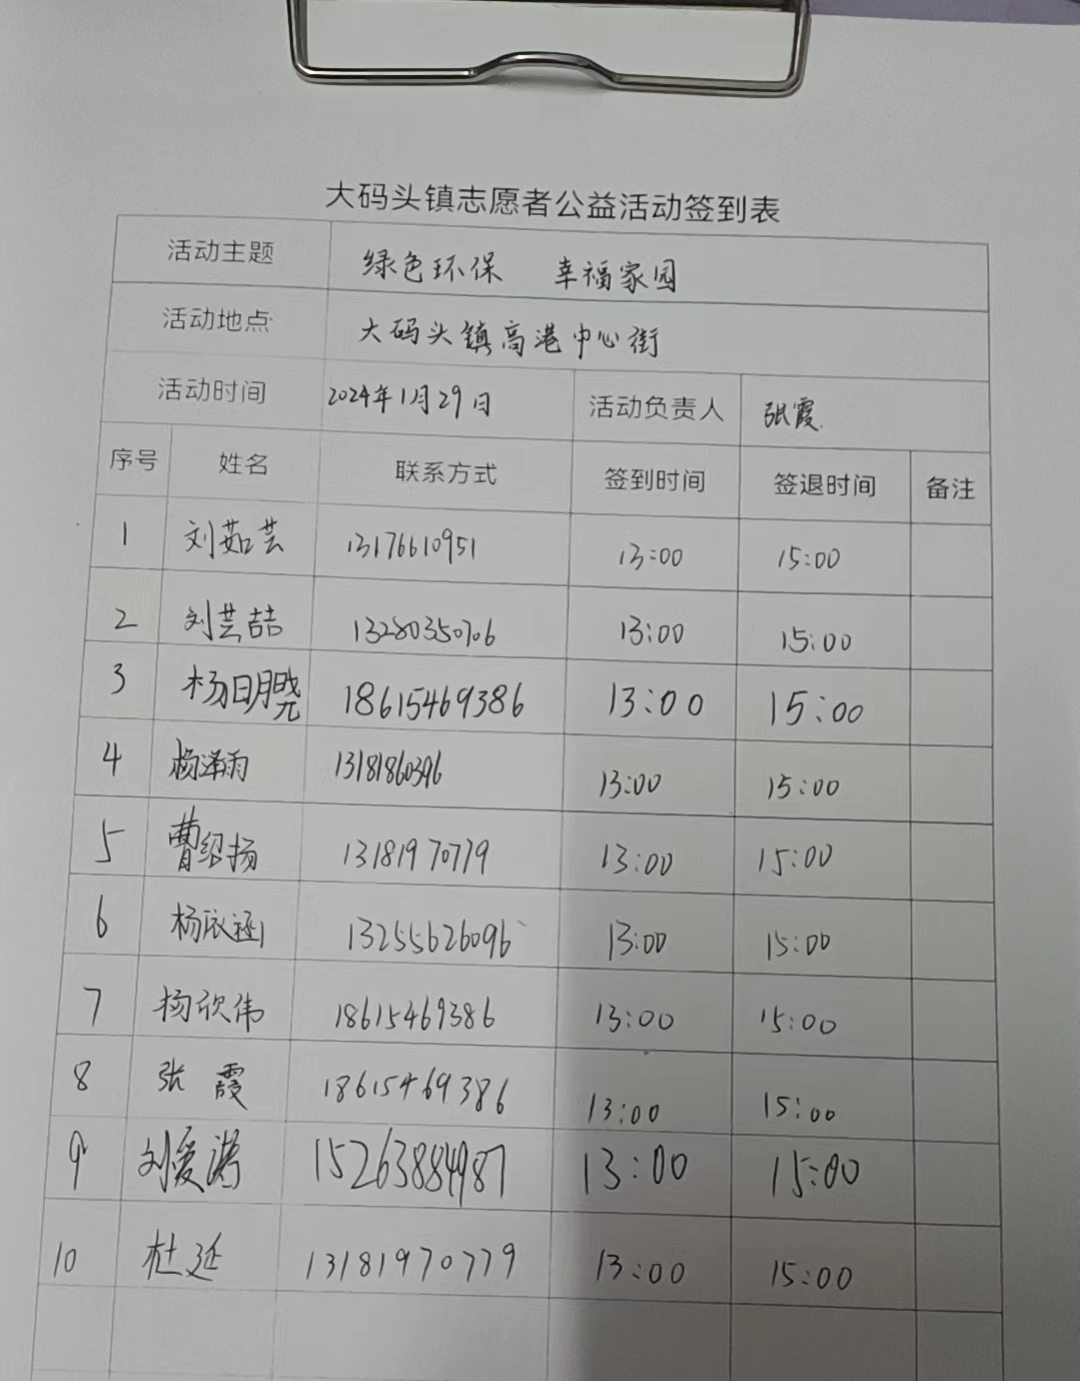 大码头镇志愿者公益活动签到表
活动主题 绿色环保 幸福家园
活动地点 大码头镇高港中心街
活动时间 2024年1月29日 活动负责人 张霞
序号 姓名 联系方式 签到时间 签退时间 备注
1 刘茹芸 13176610951 13:00 15:00
2 刘芸喆 13280350706 13:00 15:00
3 杨明晓 18615469386 13:00 15:00
4 杨泽雨 13181860396 13:00 15:00
5 曹绍扬 13181970779 13:00 15:00
6 杨依 13255626096 13:00 15:00
7 杨欣伟 18615469386 13:00 15:00
8 张霞 18615469386 13:00 15:00
9 刘爱 15263884987 13:00 15:00
10 杜延 13181970779 13:00 15:00